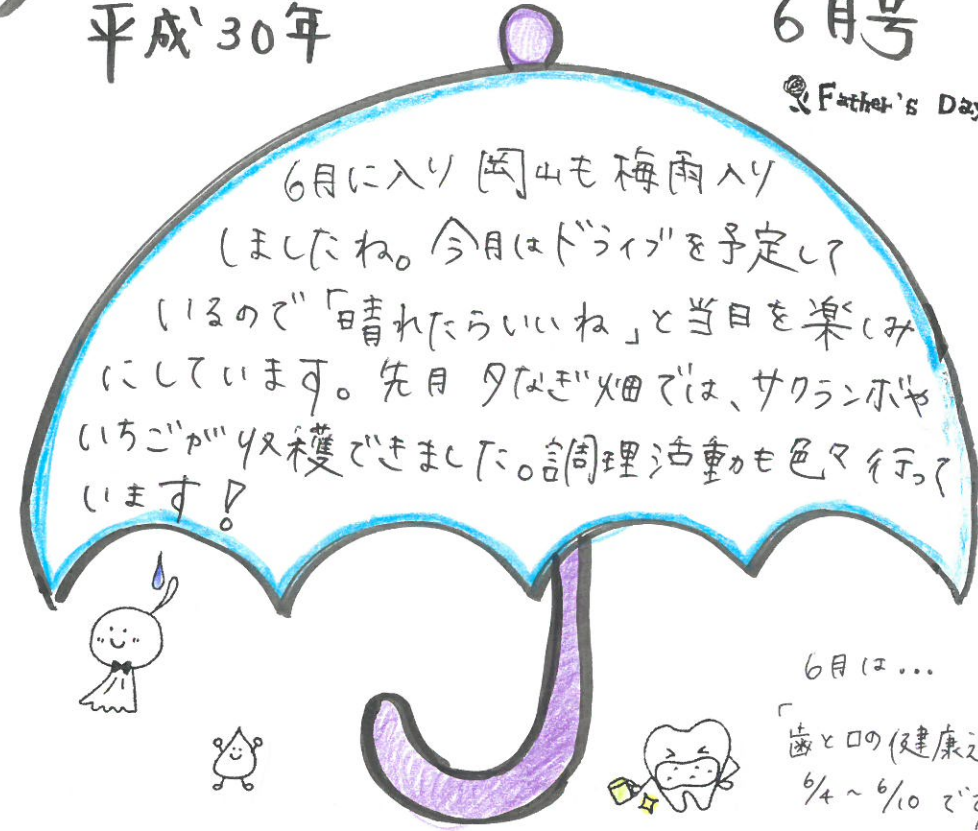 平成30年
6月号
Father's Day
6月に入り岡山も梅雨入り
しましたね。今月はドライブを予定して
いるので「晴れたらいいね」と当日を楽しみ
にしています。先月夕なぎ畑では、サクランボや
いちごが収穫できました。調理活動も色々行って
います!
6月は...
「歯と口の健康
6/4～6/10 で